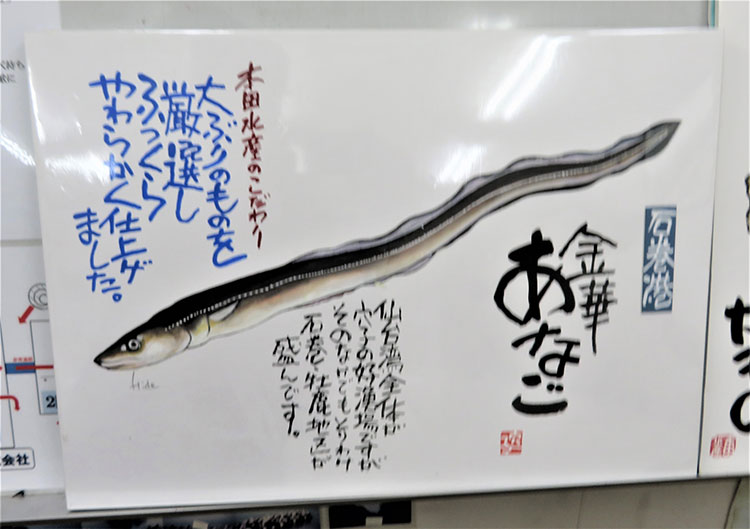 石巻港
金華
あなご
仙台湾全体が
穴子の好漁場ですが
そのなかでもとりわけ
石巻・牡鹿地区が
盛んです。
本田水産のこだわり
大ぶりのものを
厳選し
ふっくら
やわらかく仕上げ
ました。
Hide